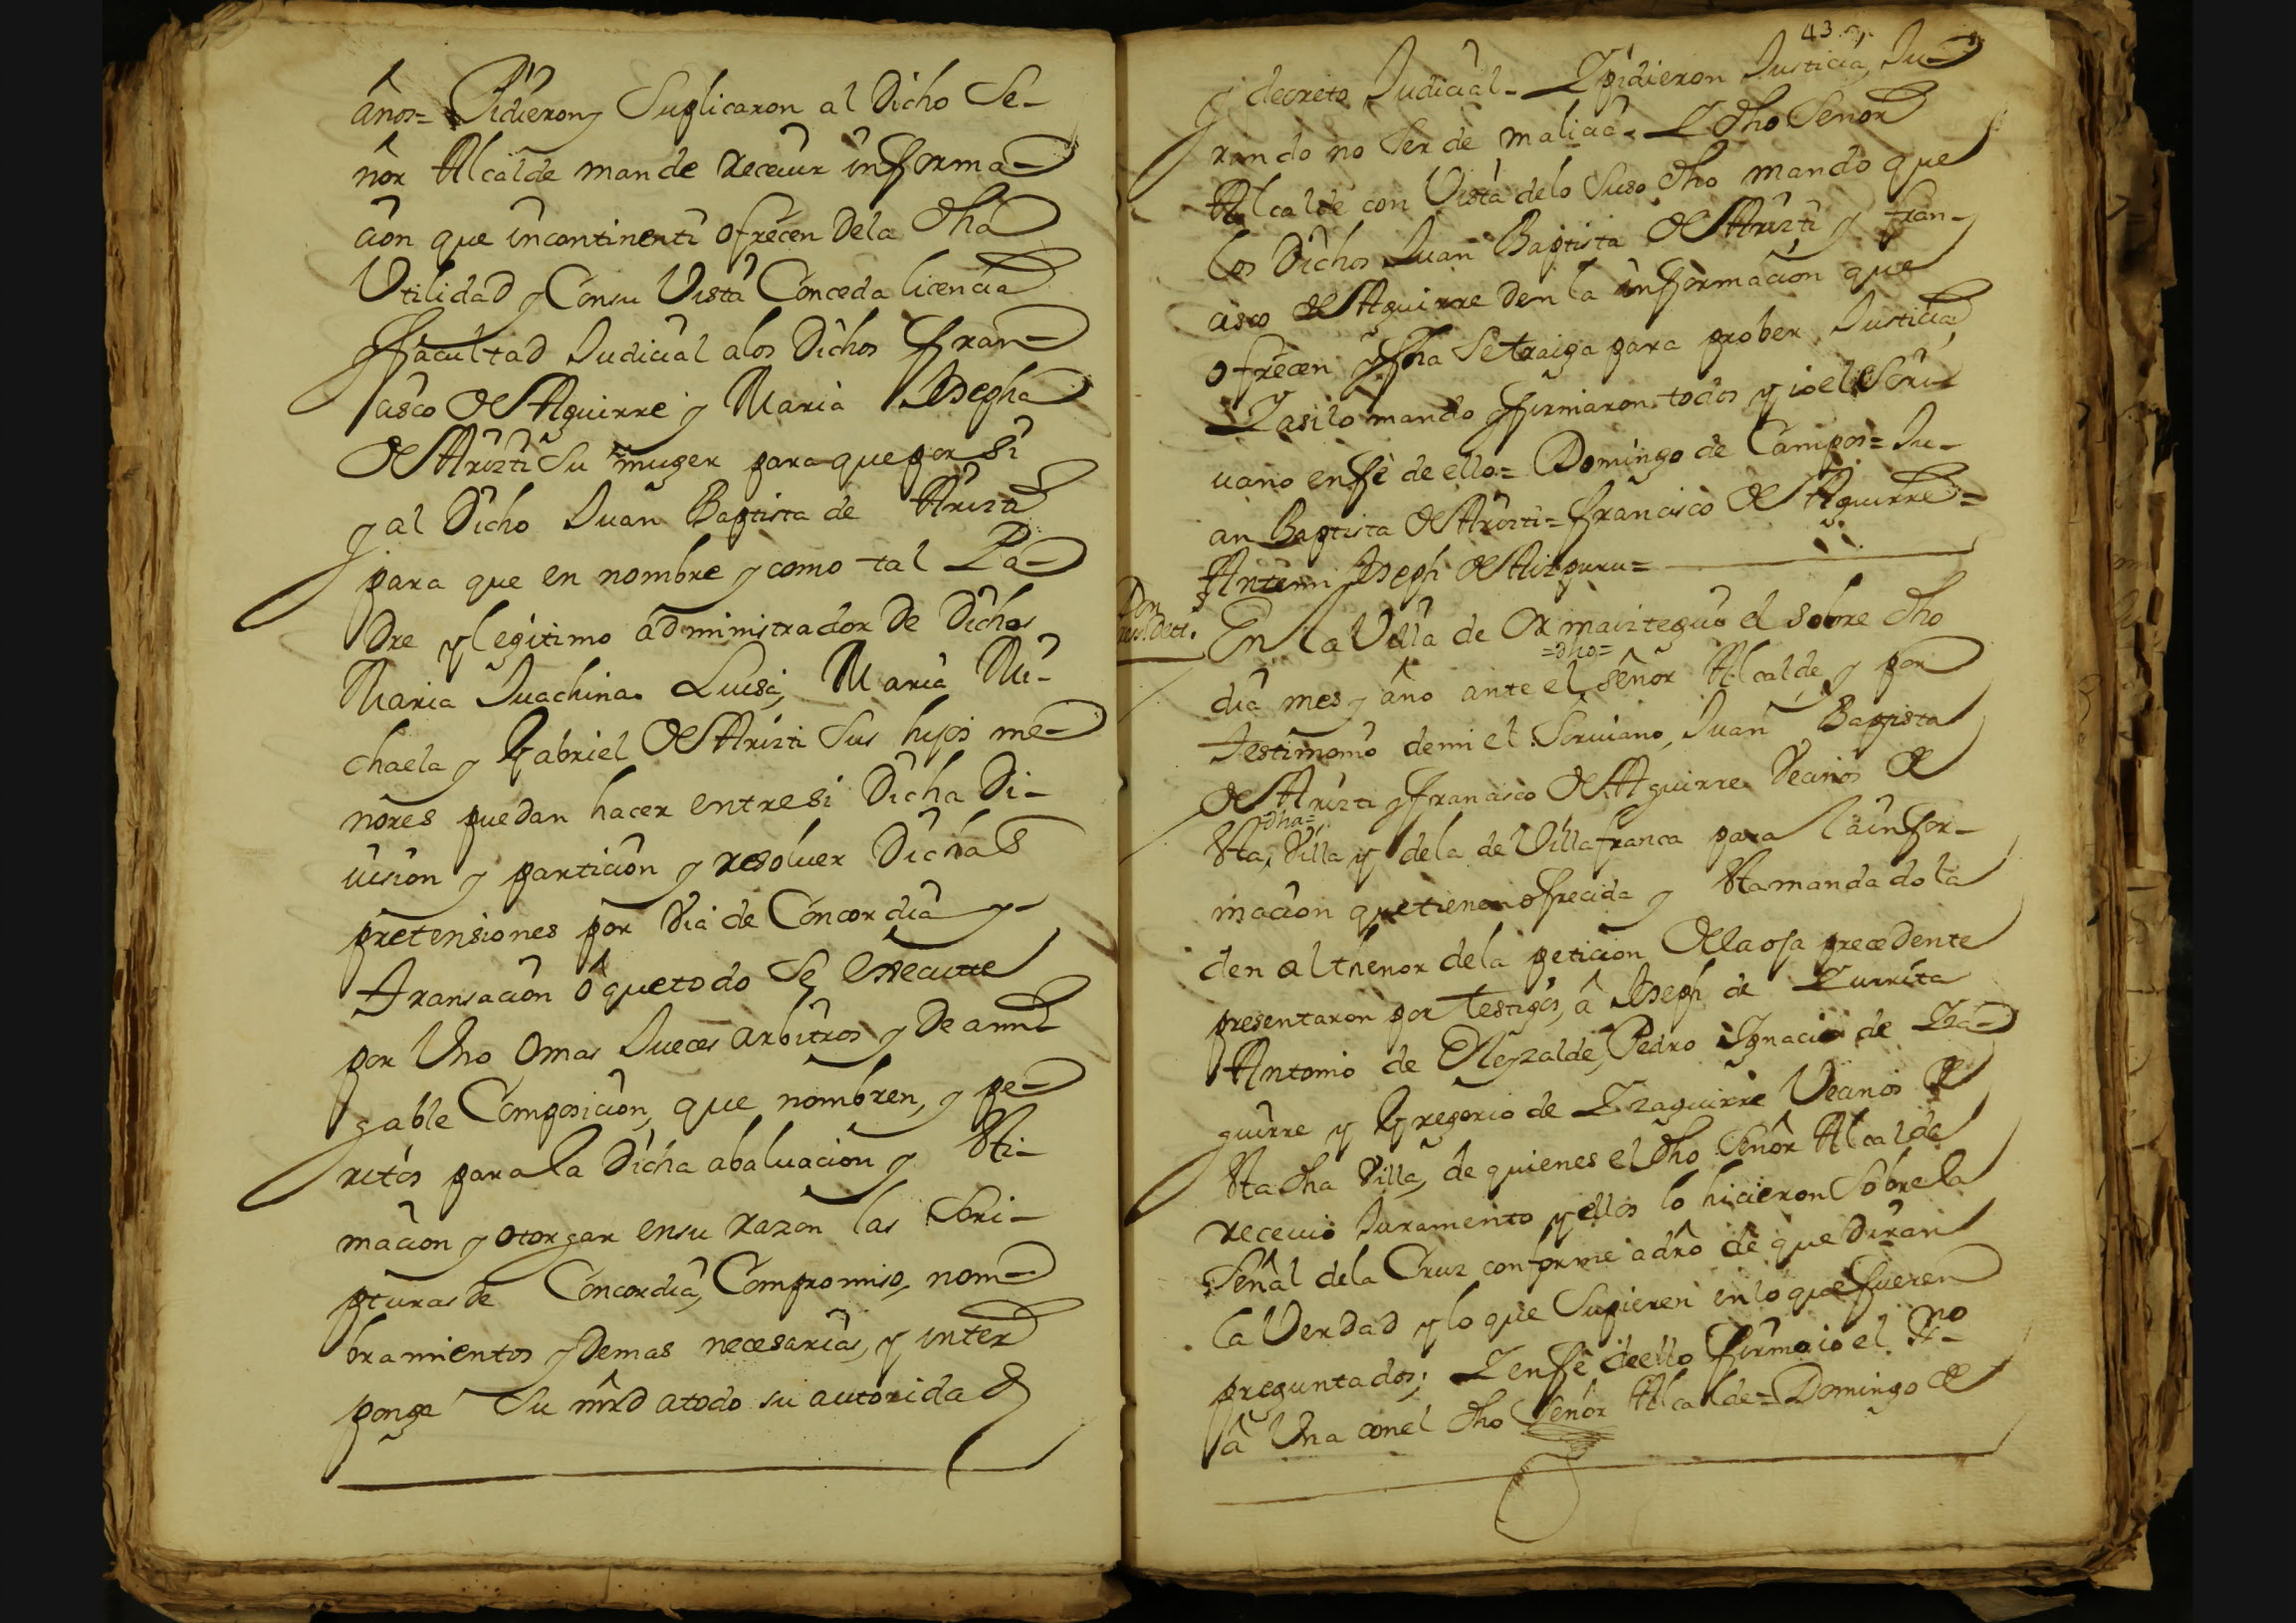 años= Pidieron y Suplicaron al Dicho Se-
ñor Alcalde mande receuir informa-
cion que incontinenti ofrecen dela dha
Utilidad y Consu Vista Conceda licencia
y facultad Judicial alos Dichos fran-
cisco de Aguirre y Maria Josepha
de Arizti su muger para que por si
y al Dicho Juan Baptista de Arizti
para que en nombre y como tal Pa-
Dre y legitimo administrador De Dichos
Maria Juachina Luisa, Maria Mi-
chaela y Gabriel de Arizti Sus hijos me-
nores puedan hacer entresi Dicha Di-
uision y particion y resoluer Dichas
pretensiones por Via de Concordia y
transacion o que todo Se execute
por Uno Omas Jueces arbitros y De ami-
gable Composicion, que nombren, y pe-
ritos para la Dicha abaluacion y Sti-
macion y otorgar ensu razon las Scri-
pturas de Concordia, Compromiso, nom-
bramientos y Demas necesarias, y inter
ponga Su mrd atodo su autoridad
43
y decreto Judicial- Y pidieron Justicia, Ju-
rando no Ser de malicia. Y dho Señor
Alcalde con Vista delo Suso dho mando que
los Dichos Juan Baptista de Arizti y fran-
cisco de Aguirre den la informacion que
ofrecen y fha Se traiga para prober Justicia
Y asi lo mando y firmaron todos y io el Scri-
uano en fe de ello= Domingo de Campos= Ju-
an Baptista de Arizti= francisco de Aguirre=
Antemi Joseph de Aizpuru=
En la Villa de Ormaiztegui el sobre dho
=dho=
dia mes y año ante el señor Alcalde y por
testimonio demi el Scriuano, Juan Baptista
de Arizti y francisco de Aguirre Vecinos de
=dha=
Sta, Villa y dela de Villafranca para la infor-
macion que tienen ofrecida y Sta mandado la
den al thenor dela peticion de la oja precedente
presentaron por testigos, a Joseph de Zurrita
Antonio de Eleyzalde, Pedro Ygnacio de Yza-
guirre y Gregorio de Yzaguirre Vecinos de
Sta dha Villa, de quienes el dho Señor Alcalde
receuio Juramento y ellos lo hicieron Sobre la
Señal dela Cruz conforme a dro de que diran
la Verdad y lo que Supieren en lo que fueren
preguntados; Y en fe de ello firmo io el Sno
a Una con el dho Señor Alcalde= Domingo de